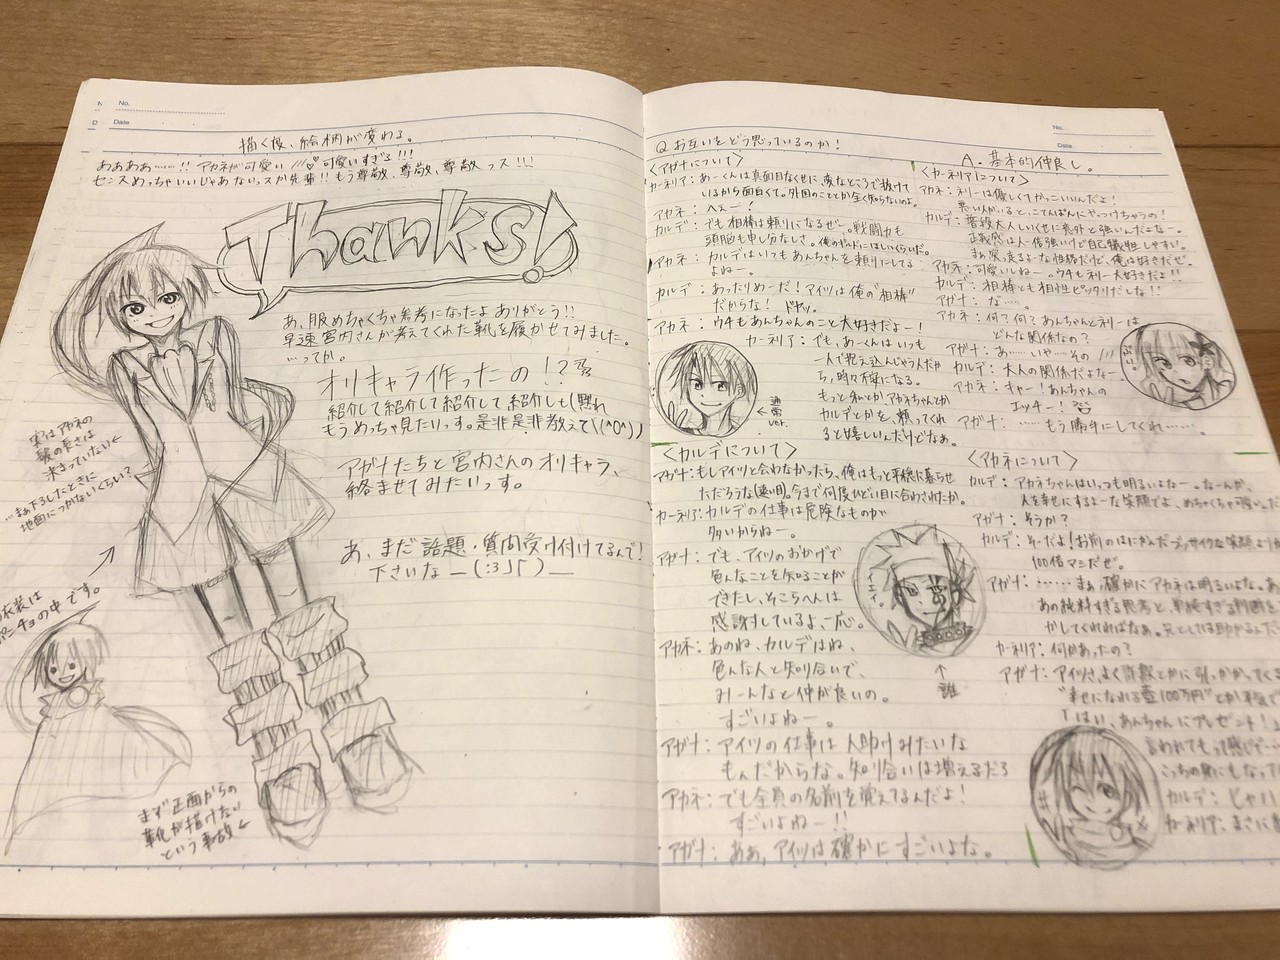 No.
Date
描く度、絵柄が変わる。
あぁああ……!! アカネが可愛い///♡ 可愛いすぎる!!!
センスめっちゃいいじゃあないっスか先輩!! もう尊敬、尊敬、尊敬っス!!!
Thanks!
あ、服めちゃくちゃ参考になったよ ありがとう!!
早速 宮内さんが考えてくれた靴を履かせてみました。
…ってか。
オリキャラ作ったの!?
紹介して紹介して紹介して紹介しも(黙れ
もうめっちゃ見たいっす。是非是非教えて\(^O^)
アガナたちと宮内さんのオリキャラ、
絡ませてみたいっす。
あ、まだ話題・質問受け付けてるんで!
下さいなー(:3」「)_
実はアカネの
髪の長さは
決まっていない←
…まぁ下ろしたときに
地面につかないくらい?
衣装は
ポンチョの中です。
まず正面からの
靴が描けない
という事故←
No.
Date
Q お互いをどう思っているのか!
A. 基本的仲良し。
<アガナについて>
カーネリア: あーくんは真面目なくせに、変なところで抜けて
いるから面白くて。外国のことが全く知らないのよ。
アカネ: へぇー!
カルデ: でも相棒は頼りになるぜー。戦闘力も
頭脳も申し分なしさ。俺の
アカネ: カルデはいつもあんちゃんを頼りにしてる
よねー。
カルデ: あったりめーだ! アイツは俺の"相棒"
だからな! ドヤッ。
アカネ: ウチもあんちゃんのこと大好きだよー!
カーネリア: でも、あーくんはいつも
一人で抱え込んじゃう人だか
ら、時々不安になる。
もっと私とか、アカネちゃんとか
カルデとかを、頼ってくれ
ると嬉しいんだけどなぁ。
← 通常ver.
<カーネリアについて>
アカネ: ネリーは優しくてかっこいいんだよ!
悪い人がいると、こてんぱんにやっつけちゃうの!
カルデ: 普段大人しいくせに意外と強いんだよなー。
正義感は人一倍強いけど自己犠牲しやすい。
アカネ: 可愛いしねー。ウチもネリー大好きだよ!!
カルデ: 相棒とも相性ピッタリだしな!!
アガナ: な……。
アカネ: 何?何?あんちゃんとネリーは
どんな関係なの?
アガナ: あ……いや……その///
カルデ: 大人の関係だよなー
アカネ: キャー!あんちゃんの
エッチー!
アガナ: ……もう勝手にしてくれ……。
<カルデについて>
アガナ: もしアイツと会わなかったら、俺はもっと平穏に暮らせ
ただろうな(遠い目)。今まで何度ひどい目に合わされたか。
カーネリア: カルデの仕事は危険なものが
多いからねー。
アガナ: でも、アイツのおかげで
色んなことを知ることが
できたし、そこらへんは
感謝しているよ、一応。
アカネ: あのね、カルデはね、
色んな人と知り合いで、
みーんなと仲が良いの。
すごいよねー。
アガナ: アイツの仕事は人助けみたいな
もんだからな。知り合いは増えるだろ
アカネ: でも全員の名前を覚えてるんだよ!
すごいよねー!!
アガナ: あぁ、アイツは確かにすごいよな。
イエイ。
↑
誰
<アカネについて>
カルデ: アカネちゃんはいっつも明るいよなー。なーんか、
人を幸せにするよーな笑顔でよ、めちゃくちゃ可愛いん
アガナ: そうか?
カルデ: そーだよ! お前のはにかんだブッサイクな笑顔より
100倍マシだぜ。
アガナ: ……まぁ、確かにアカネは明るいよな。
あの純粋すぎる思考と、単純すぎる判断を
カーネリア: 何かあったの?
アガナ: アイツさ、よく詐欺とかに引っかかってく
"幸せになれる壺100万円"とか
「はい、あんちゃんにプレゼント!」
言われてもって感じで
こっちの身にもなって
カルデ: じゃ
カーネリア: まさに